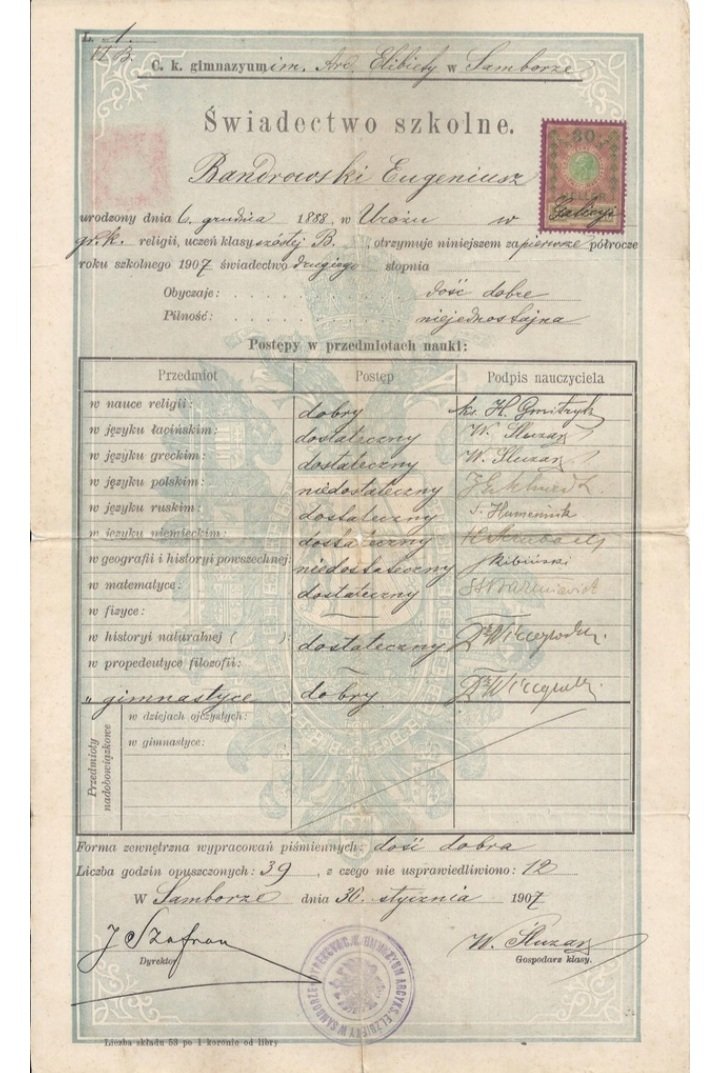 L. 1.
VI B.
C. k. gimnazyum im. Arc. Elżbiety w Samborze
Świadectwo szkolne.
30
Bandrowski Eugeniusz
urodzony dnia 6. grudnia 1888, w Urożu w Galicyi
gr. k. religii, uczeń klasy szóstej B. otrzymuje niniejszem za pierwsze półrocze
roku szkolnego 1907 świadectwo drugiego stopnia
Obyczaje: dość dobre
Pilność: niejednostajna
Postępy w przedmiotach nauki:
Przedmiot Postęp Podpis nauczyciela
w nauce religii: dobry ks. H. Gmitrzyk
w języku łacińskim: dostateczny W. Śluzar
w języku greckim: dostateczny W. Śluzar
w języku polskim: niedostateczny
w języku ruskim: dostateczny
w języku niemieckim: dostateczny
w geografii i historyi powszechnej: niedostateczny
w matematyce: dostateczny
w fizyce: —
w historyi naturalnej ( ): dostateczny
w propedeutyce filozofii: —
„ gimnastyce dobry
Przedmioty nadobowiązkowe
w dziejach ojczystych:
w gimnastyce:
Forma zewnętrzna wypracowań piśmiennych: dość dobra
Liczba godzin opuszczonych: 39, z czego nie usprawiedliwiono: 12
W Samborze dnia 30. stycznia 1907
J Szafran W. Śluzar
Dyrektor Gospodarz klasy.
DYREKCYA C. K. GIMNAZYUM ARCYKS. ELŻBIETY W SAMBORZE
Liczba składu 53 po 1 koronie od libry